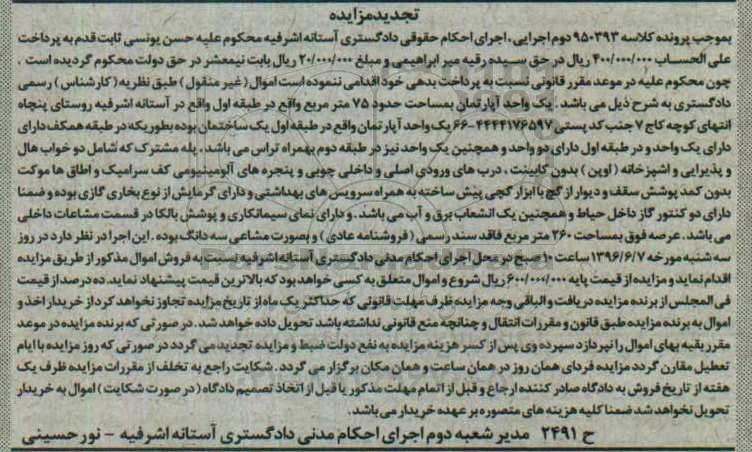 تجدیدمزایده
بموجب پرونده کلاسه ۹۵۰۳۹۳ دوم اجرایی، اجرای احکام حقوقی دادگستری آستانه اشرفیه محکوم علیه حسن یونسی ثابت قدم به پرداخت
علی الحساب ۴۰۰/۰۰۰/۰۰۰ ریال در حق سیده رقیه میر ابراهیمی و مبلغ ۲۰/۰۰۰/۰۰۰ ریال بابت نیمعشر در حق دولت محکوم گردیده است .
چون محکوم علیه در موعد مقرر قانونی نسبت به پرداخت بدهی خود اقدامی ننموده است اموال ( غیر منقول ) طبق نظریه ( کارشناس ) رسمی
دادگستری به شرح ذیل می باشد . یک واحد آپارتمان بمساحت حدود ۷۵ متر مربع واقع در طبقه اول واقع در آستانه اشرفیه روستای پنچاه
انتهای کوچه کاج ۷ جنب کد پستی ۴۴۴۴۱۷۶۵۹۷-۶۶ یک واحد آپارتمان واقع در طبقه اول یک ساختمان بوده بطوریکه در طبقه همکف دارای
دارای یک واحد و در طبقه اول دارای دو واحد و همچنین یک واحد نیز در طبقه دوم بهمراه تراس می باشد . پله مشترک که شامل دو خواب هال
و پذیرایی و اشپزخانه ( اوپن ) بدون کابینت ، درب های ورودی اصلی و داخلی چوبی و پنجره های آلومینیومی کف سرامیک و اطاق ها موکت
بدون کمد پوشش سقف و دیوار از گچ با ابزار گچی پیش ساخته به همراه سرویس های بهداشتی و دارای گرمایش از نوع بخاری گازی بوده و ضمنا
دارای دو کنتور گاز داخل حیاط و همچنین یک انشعاب برق و آب می باشد . و دارای نمای سیمانکاری و پوشش بالکا در قسمت مشاعات داخلی
می باشد . عرصه فوق بمساحت ۲۶۰ متر مربع فاقد سند رسمی ( فروشنامه عادی ) و بصورت مشاعی سه دانگ بوده . این اجرا در نظر دارد در روز
سه شنبه مورخه ۱۳۹۶/۶/۷ ساعت ۱۰ صبح در محل اجرای احکام مدنی دادگستری آستانه اشرفیه نسبت به فروش اموال مذکور از طریق مزایده
اقدام نماید و مزایده از قیمت پایه ۶۰۰/۰۰۰/۰۰۰ ریال شروع و اموال متعلق به کسی خواهد بود که بالاترین قیمت پیشنهاد نماید. ده درصد از قیمت
فی المجلس از برنده مزایده دریافت و الباقی وجه مزایده ظرف مهلت قانونی که حداکثر یک ماه از تاریخ مزایده تجاوز نخواهد کرد از خریدار اخذ و
اموال به برنده مزایده طبق قانون و مقررات انتقال و چنانچه منع قانونی نداشته باشد تحویل داده خواهد شد . در صورتی که برنده مزایده در موعد
مقرر بقیه بهای اموال را نپردازد سپرده وی پس از کسر هزینه مزایده به نفع دولت ضبط و مزایده تجدید می گردد در صورتی که روز مزایده با ایام
تعطیل مقارن گردد مزایده فردای همان روز در همان ساعت و همان مکان برگزار می گردد . شکایت راجع به تخلف از مقررات مزایده ظرف یک
هفته از تاریخ فروش به دادگاه صادر کننده ارجاع و قبل از اتمام مهلت مذکور یا قبل از اتخاذ تصمیم دادگاه ( در صورت شکایت ) اموال به خریدار
تحویل نخواهد شد ضمنا کلیه هزینه های متصوره بر عهده خریدار می باشد.
ح ۲۴۹۱ مدیر شعبه دوم اجرای احکام مدنی دادگستری آستانه اشرفیه - نور حسینی